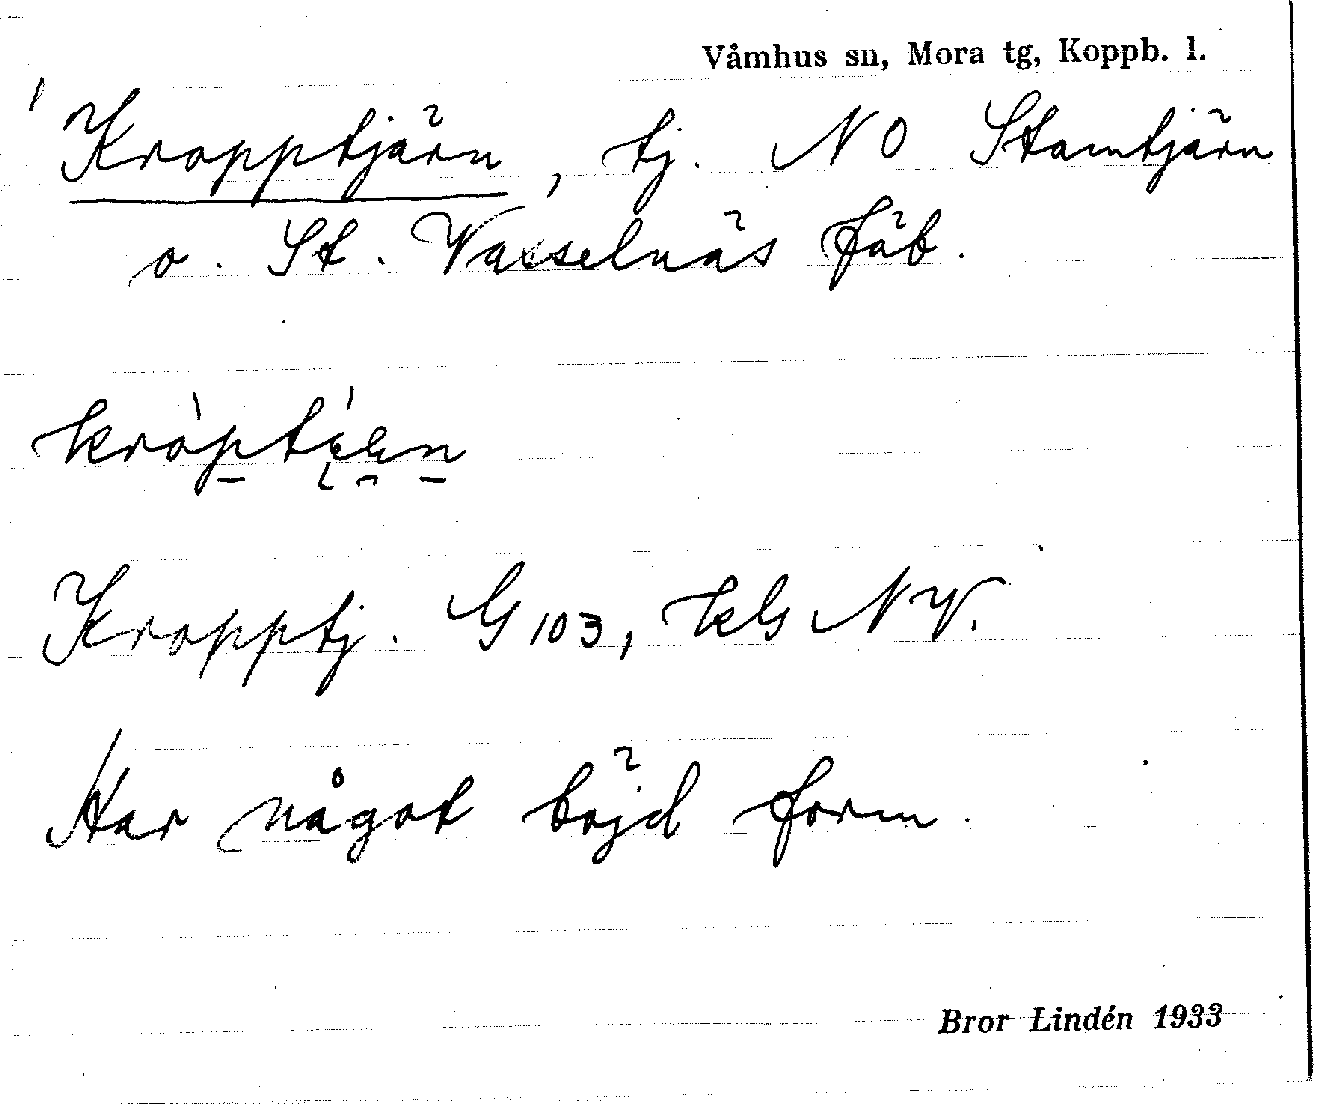 Våmhus sn, Mora tg, Koppb. l.
Kropptjärn, tj. NO Stamtjärn
o. St. Vasselnäs fäb.
Kropptj. G 103, kbl NV.
Har något böjd form.
Bror Lindén 1933